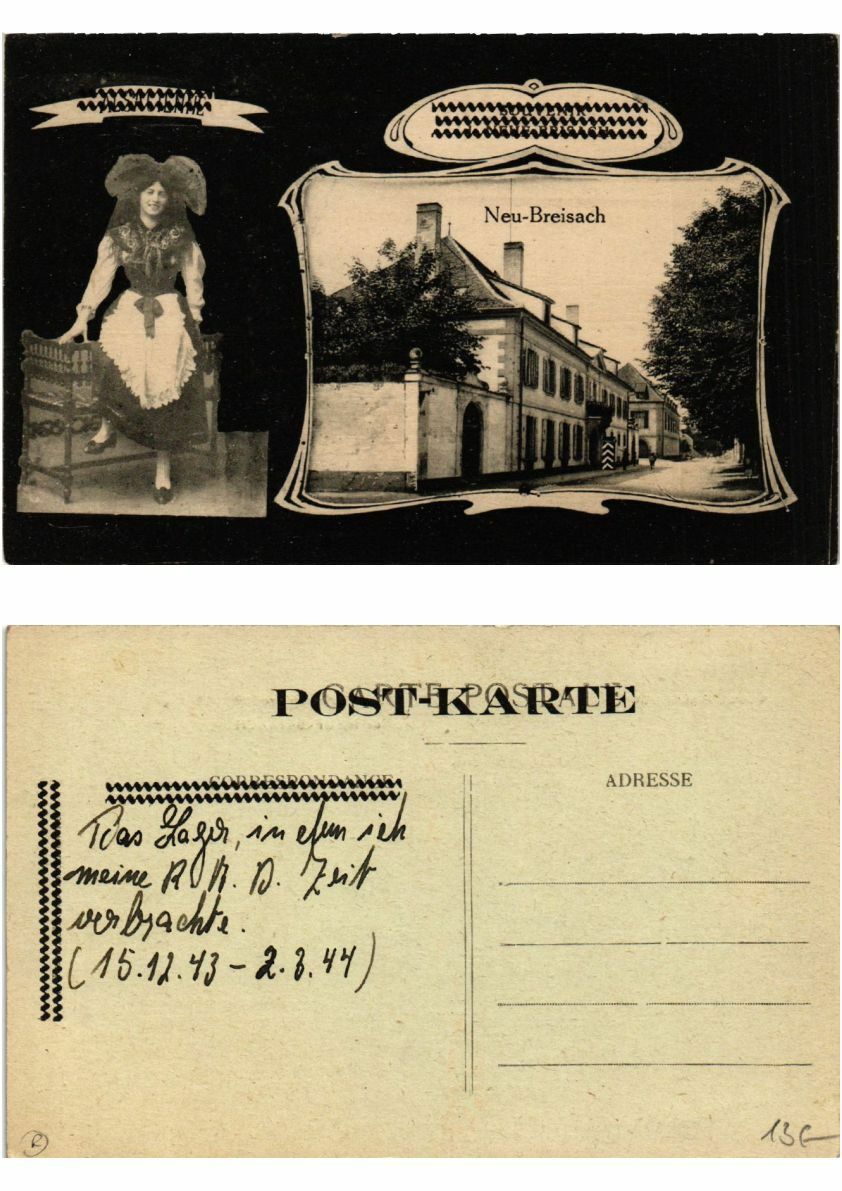 ALSACIENNE
SOUVENIR
Neu-Breisach
CARTE POSTALE
POST-KARTE
CORRESPONDANCE
ADRESSE
Das Lager, in dem ich
meine R. A. D. Zeit
verbrachte.
(15.12.43 – 2.3.44)
R
13€